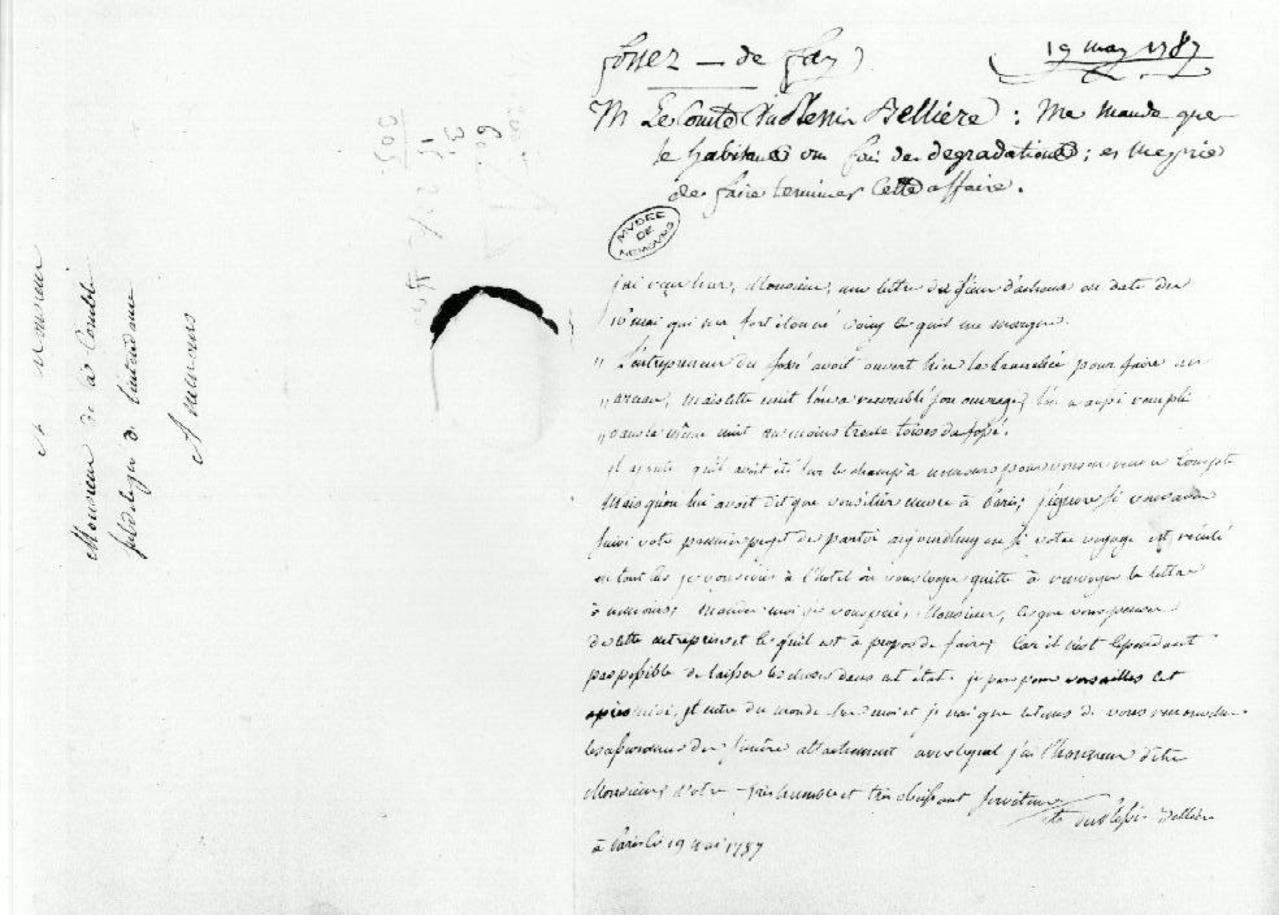 A Monsieur
Monsieur de la
subdelegué de l'intendance
A nemours
fossez — de fay
19 may 1787
Mr Le Comte Du Plessix Bellière : Me mande que
le habitans on fai des degradations ; et me prie
de faire terminer Cette affaire.
MVSEE
DE
NEMOURS
j'ai reçu hier, Monsieur, une lettre du sieur en date du
mai qui m'a fort étonné voicy ce qu'il me marque.
" L'entrepreneur du fossé avoit ouvert hier la tranchée pour faire un
" arceau, mais cette nuit l'on a recomblé son ouvrage, l'on a aussi rempli
" dans la même nuit au moins trente toises du fossé.
il ajoute qu'il avoit été sur le champ a nemours pour vous en rendre Compte
Mais qu'on lui avoit dit que vous étiez encore à Paris; j'ignore si vous avez
suivi votre premier projet de partir aujourdhuy ou si votre voyage est reculé
en tout cas je vous écris à l'hotel où vous logez quitte à renvoyer la lettre
à nemours; Mandez moi je vous prie, Monsieur, ce que vous pensez
de cette entreprise et ce qu'il est à propos de faire; Car il n'est cependant
pas possible de laisser les choses dans cet état. je pars pour versailles cet
après midi, il entre du monde chez moi et je n'ai que le tems de vous renouveller
les assurances du sincère attachement avec lequel j'ai l'honneur d'etre
Monsieur, Votre très humble et très obéissant serviteur
du Plessis Bellière
à Paris le 19 Mai 1787